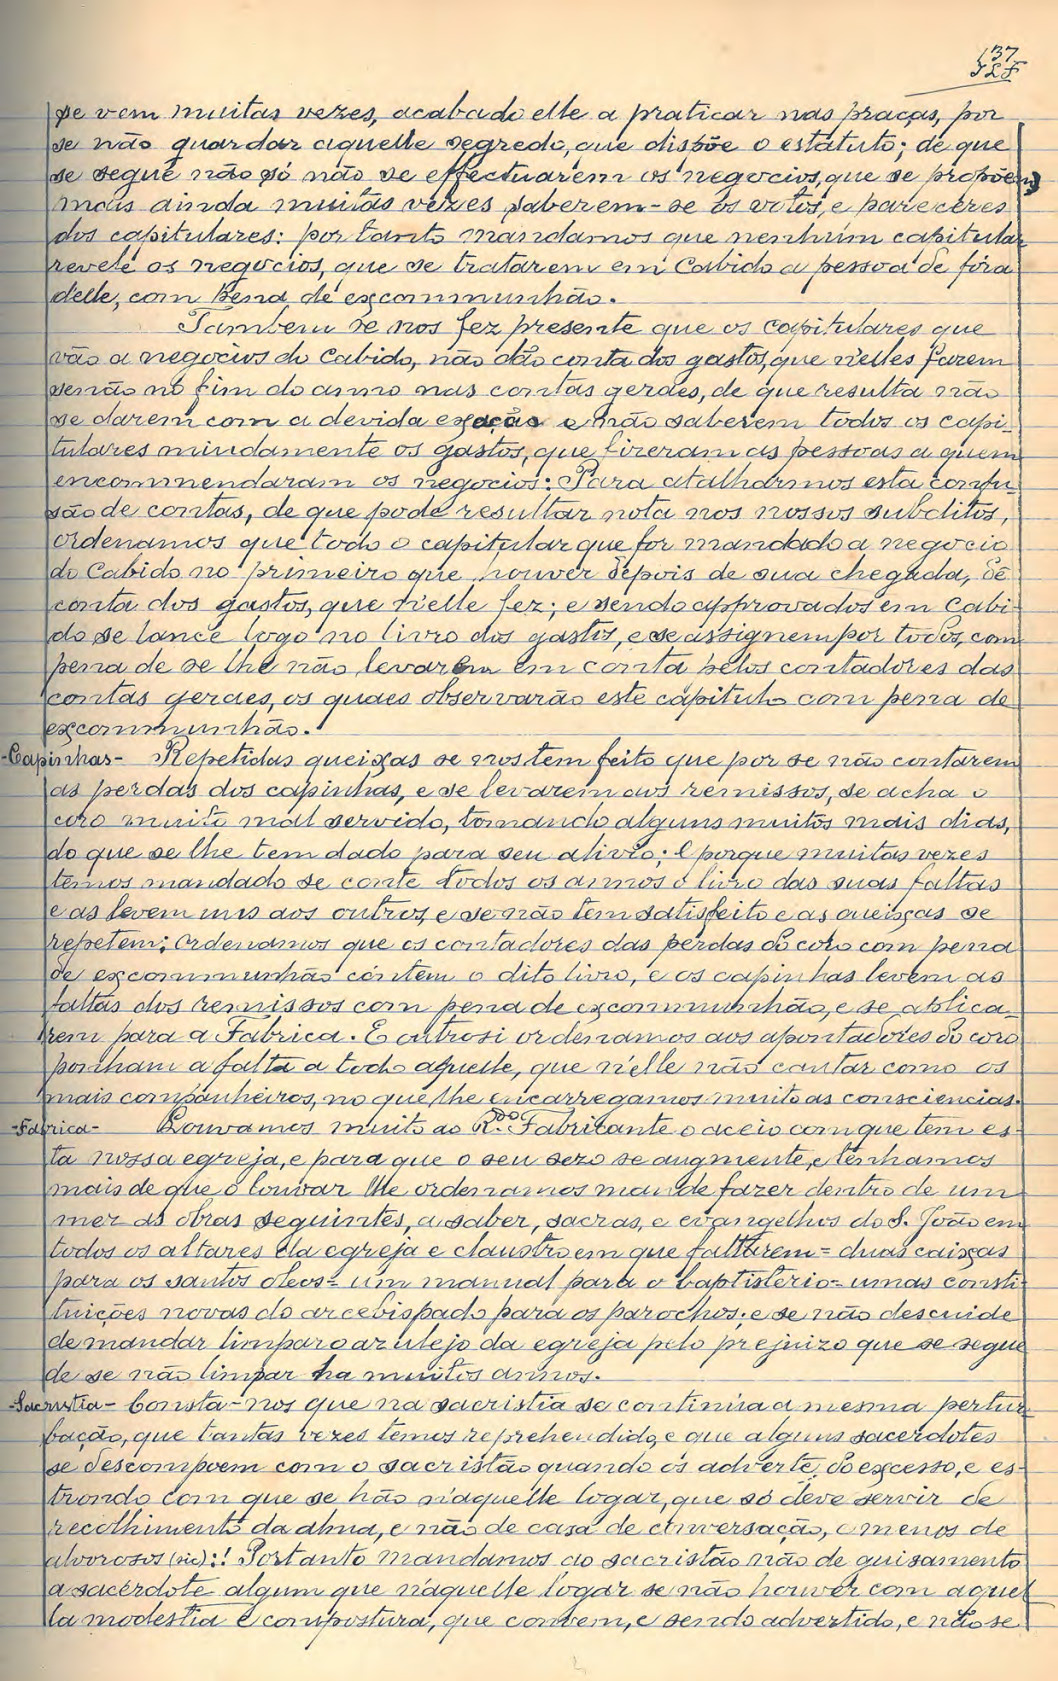 137
se vem muitas vezes, acabado elle a praticar nas praças, por
se não guardar aquelle segredo, que dispõe o estatuto; de que
se segue não só não se effectuarem os negocios, que se propõem,
mais ainda muitas vezes saberem-se os votos, e pareceres
dos capitulares: por tanto mandamos que nenhum capitular
revele os negocios, que se tratarem em Cabido a pessoa de fóra
delle, com pena de excommunhão.
Tambem se nos fez presente que os capitulares que
vão a negocios do Cabido, não dão conta dos gastos, que n'elles fazem
senão no fim do anno nas contas geraes, de que resulta não
se darem com a devida exação e não saberem todos os capi-
tulares miudamente os gastos, que fizeram as pessoas a quem
encommendaram os negocios: Para atalharmos esta confu-
são de contas, de que pode resultar nota nos nossos subditos,
ordenamos que todo o capitular que for mandado a negocio
do Cabido no primeiro que houver depois de sua chegada, dê
conta dos gastos, que n'elle fez; e sendo approvados em Cabi-
do se lance logo no livro dos gastos, e se assignem por todos, com
pena de se lhe não levarem em conta pelos contadores das
contas geraes, os quaes observarão este capitulo com pena de
excommunhão.
-Capinhas- Repetidas queixas se nos tem feito que por se não contarem
as perdas dos capinhas, e se levarem aos remissos, se acha o
coro muito mal servido, tomando alguns muitos mais dias,
do que se lhe tem dado para seu alivio; e porque muitas vezes
temos mandado se conte todos os annos o livro das suas faltas
e as levem uns aos outros, e se não tem satisfeito e as queixas se
repetem; ordenamos que os contadores das perdas do coro com pena
de excommunhão contem o dito livro, e os capinhas levem as
faltas dos remissos com pena de excommunhão, e se aplica-
rem para a Fabrica. E outrosi ordenamos aos apontadores do coro
ponham a falta a todo aquelle, que n'elle não cantar como os
mais companheiros, no que lhe encarregamos muito as consciencias.
-Fabrica- Louvamos muito ao R.do Fabricante o aceio com que tem es-
ta nossa egreja, e para que o seu sezo se augmente, e tenhamos
mais de que o louvar lhe ordenamos mande fazer dentro de um
mez as obras seguintes, a saber, sacras, e evangelhos do S. João em
todos os altares da egreja e claustro em que faltarem = duas caixas
para os santos oleos = um manual para o baptisterio = umas consti-
tuições novas do arcebispado para os parochos; e se não descuide
de mandar limpar o azulejo da egreja pelo prejuizo que se segue
de se não limpar ha muitos annos.
-Sacristia- Consta-nos que na sacristia se continúa a mesma pertur-
bação, que tantas vezes temos reprehendido, e que alguns sacerdotes
se descompoem com o sacristão quando os adverte do excesso, e es-
trondo com que se hão n'aquelle logar, que só deve servir de
recolhimento da alma, e não de casa de conversação, e menos de
alvorosos (sic)!! Portanto mandamos ao sacristão não de guisamento
a sacerdote algum que n'aquelle logar se não houver com aquel-
la modestia e compostura, que convem, e sendo advertido, e não se